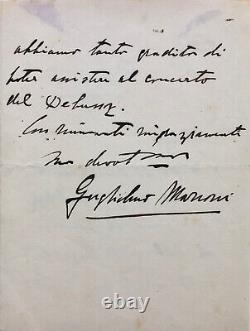 abbiamo tanto gradito di
poter assistere al concerto
del Debussy.
Con rinnovati ringraziamenti
suo devotmo
Guglielmo Marconi
ebay